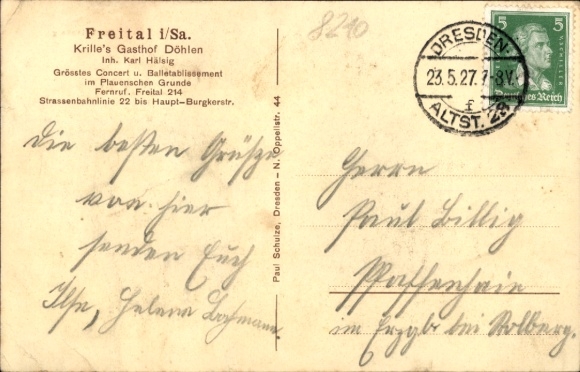 Freital i/Sa.
Krille's Gasthof Döhlen
Inh. Karl Hälsig
Grösstes Concert u. Balletablissement
im Plauenschen Grunde
Fernruf. Freital 214
Strassenbahnlinie 22 bis Haupt-Burgkerstr.
8210
DRESDEN-
23.5.27.7-8V.
f
ALTST. 28
5 5
Deutsches Reich
die besten Grüße
von hier
senden Euch
Ilse, Helene
Paul Schulze, Dresden-N. Oppellstr. 44
Herrn
Paul Billig
Pfaffenhain
im Erzgb. bei Stolberg.